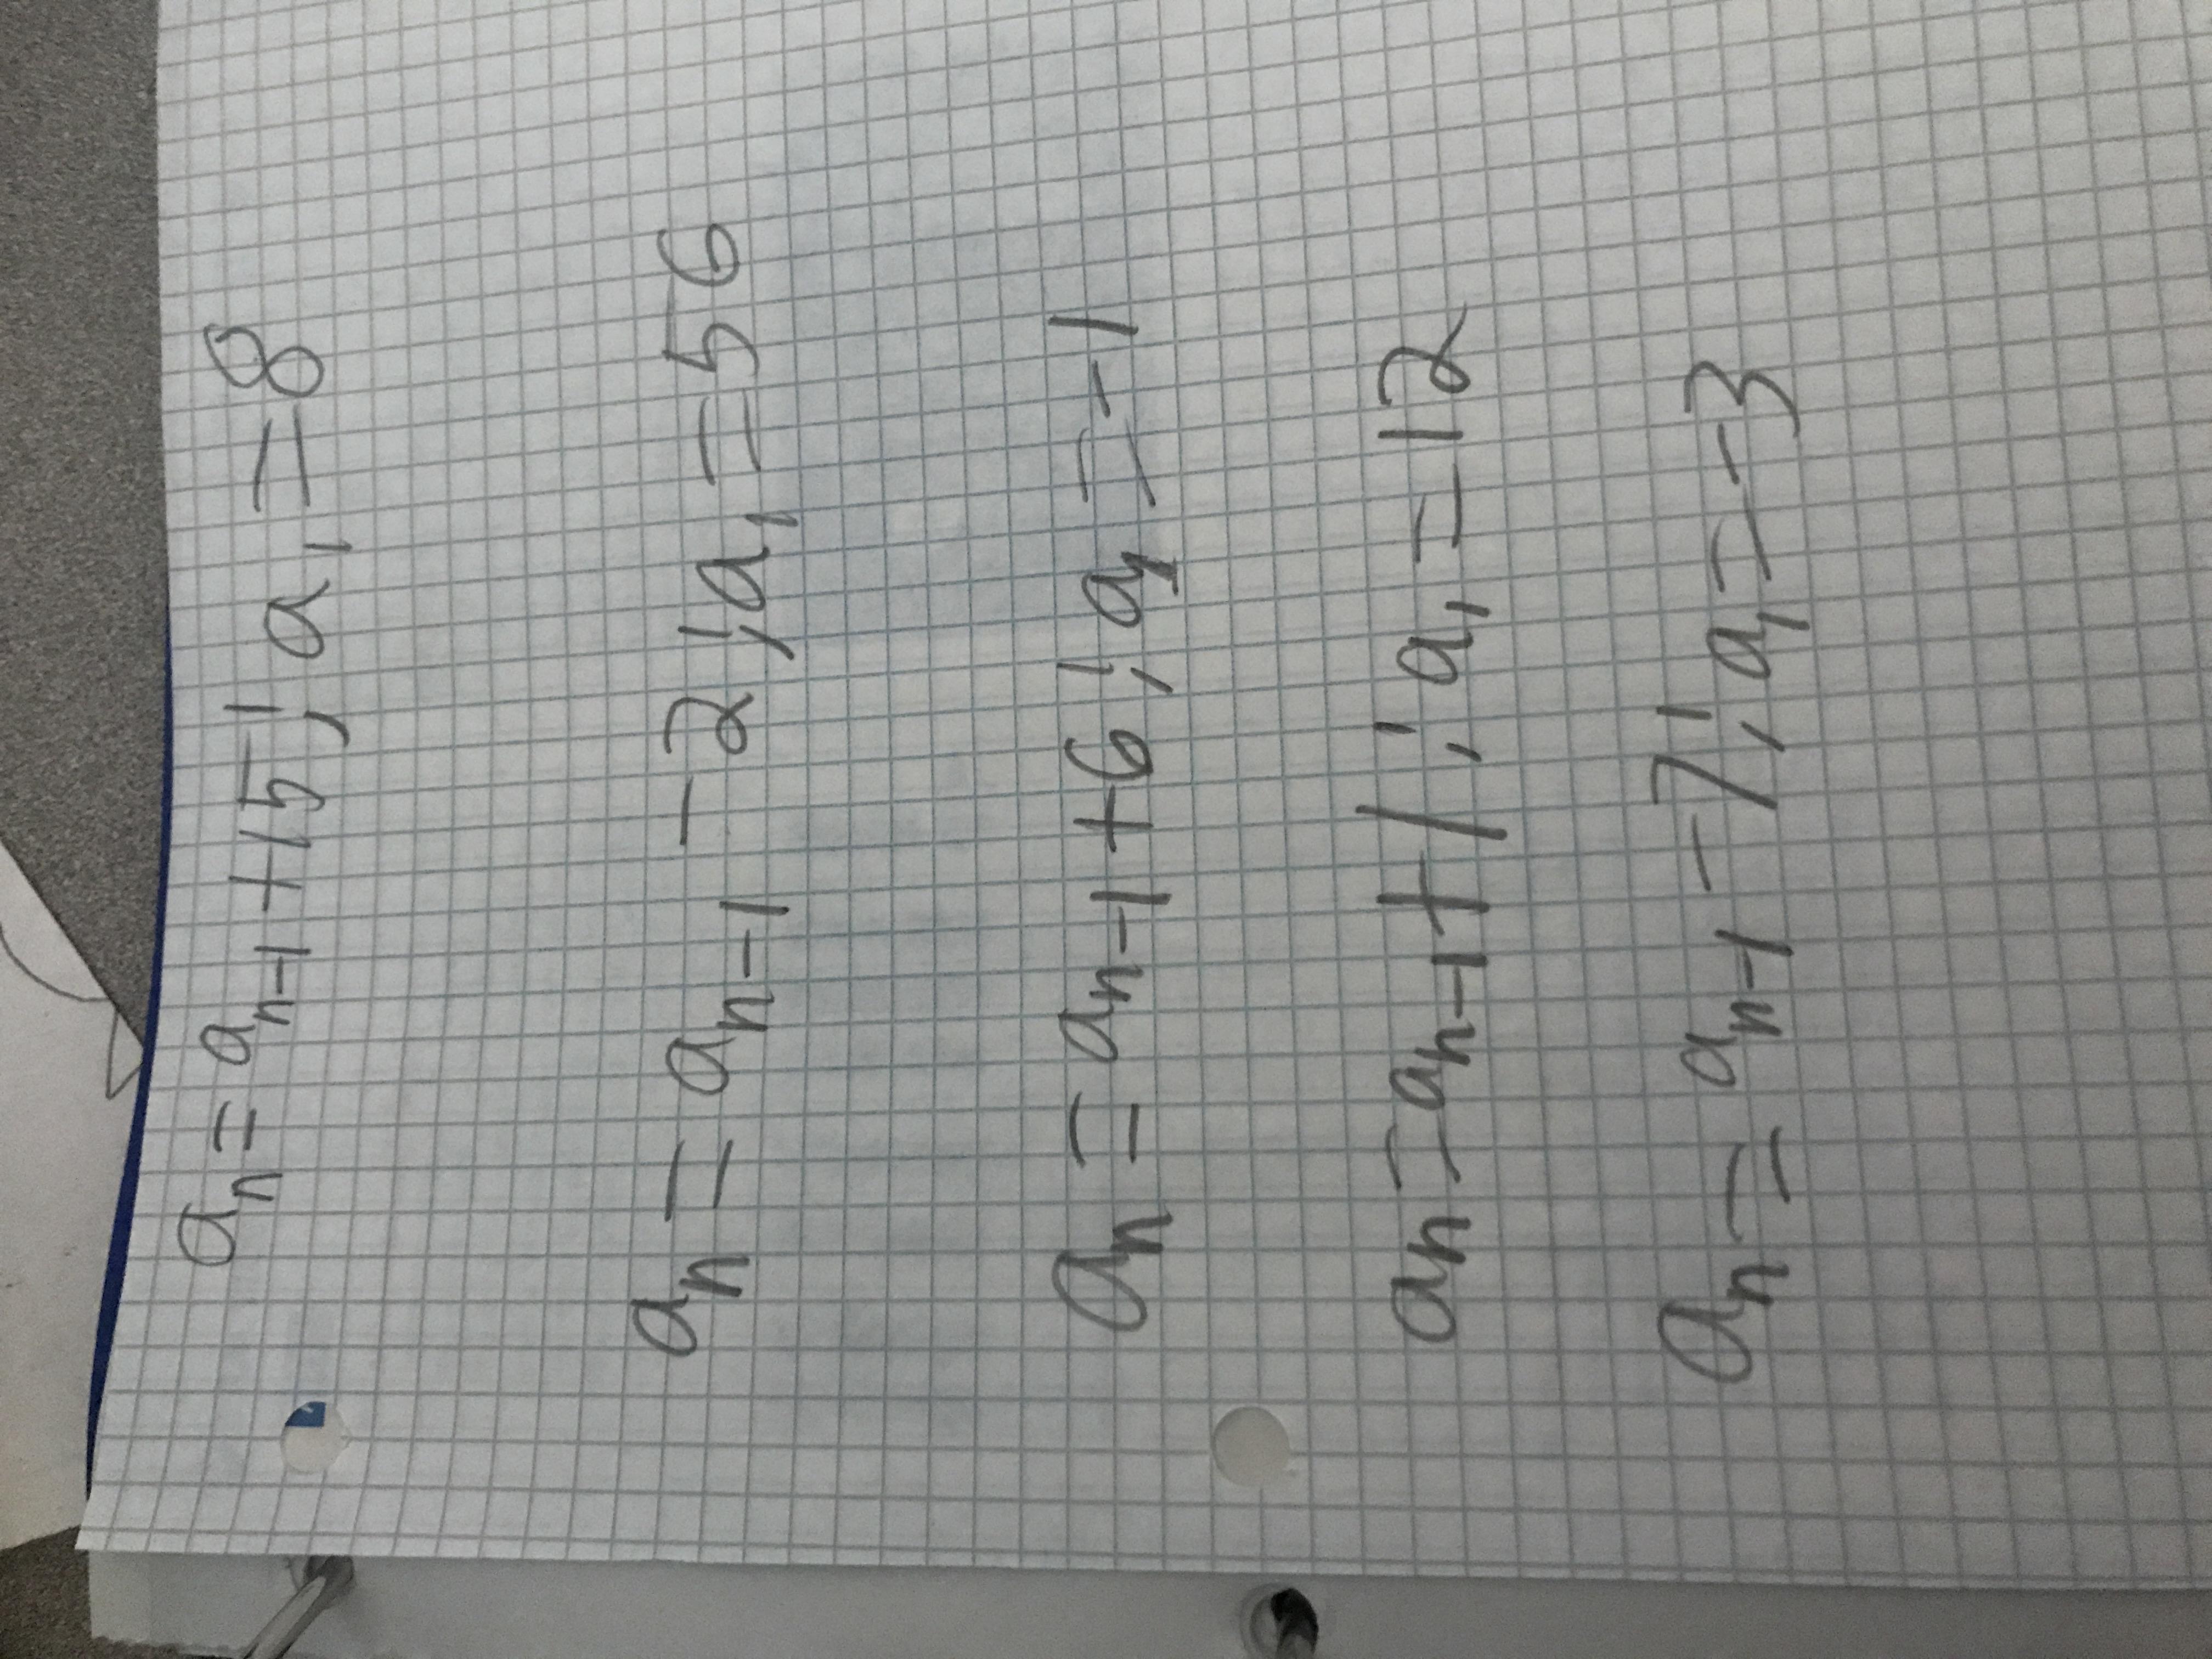 aₙ = aₙ₋₁ + 15; a₁ = 8
aₙ = aₙ₋₁ - 2; a₁ = 56
aₙ = aₙ₋₁ + 6; a₁ = -1
aₙ = aₙ₋₁ + 1; a₁ = 12
aₙ = aₙ₋₁ - 7; a₁ = -3